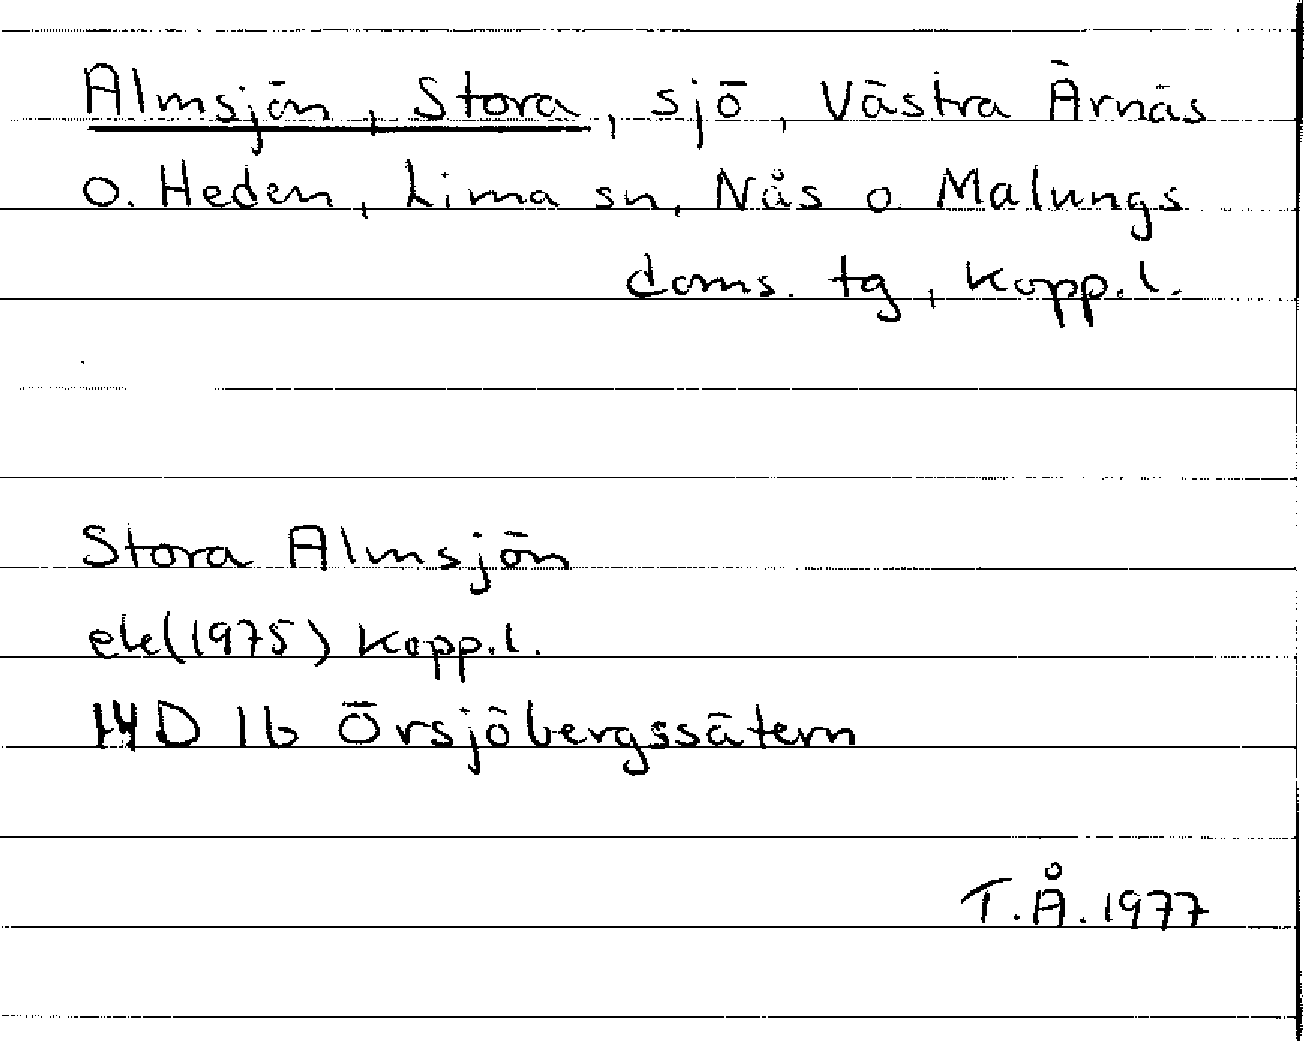 Almsjön, Stora, sjö, Västra Ärnäs
o. Heden, Lima sn, Nås o Malungs
doms. tg, Kopp.l.
Stora Almsjön
ek(1975) Kopp.l.
14D 1b Örsjöbergssätern
T.Å.1977